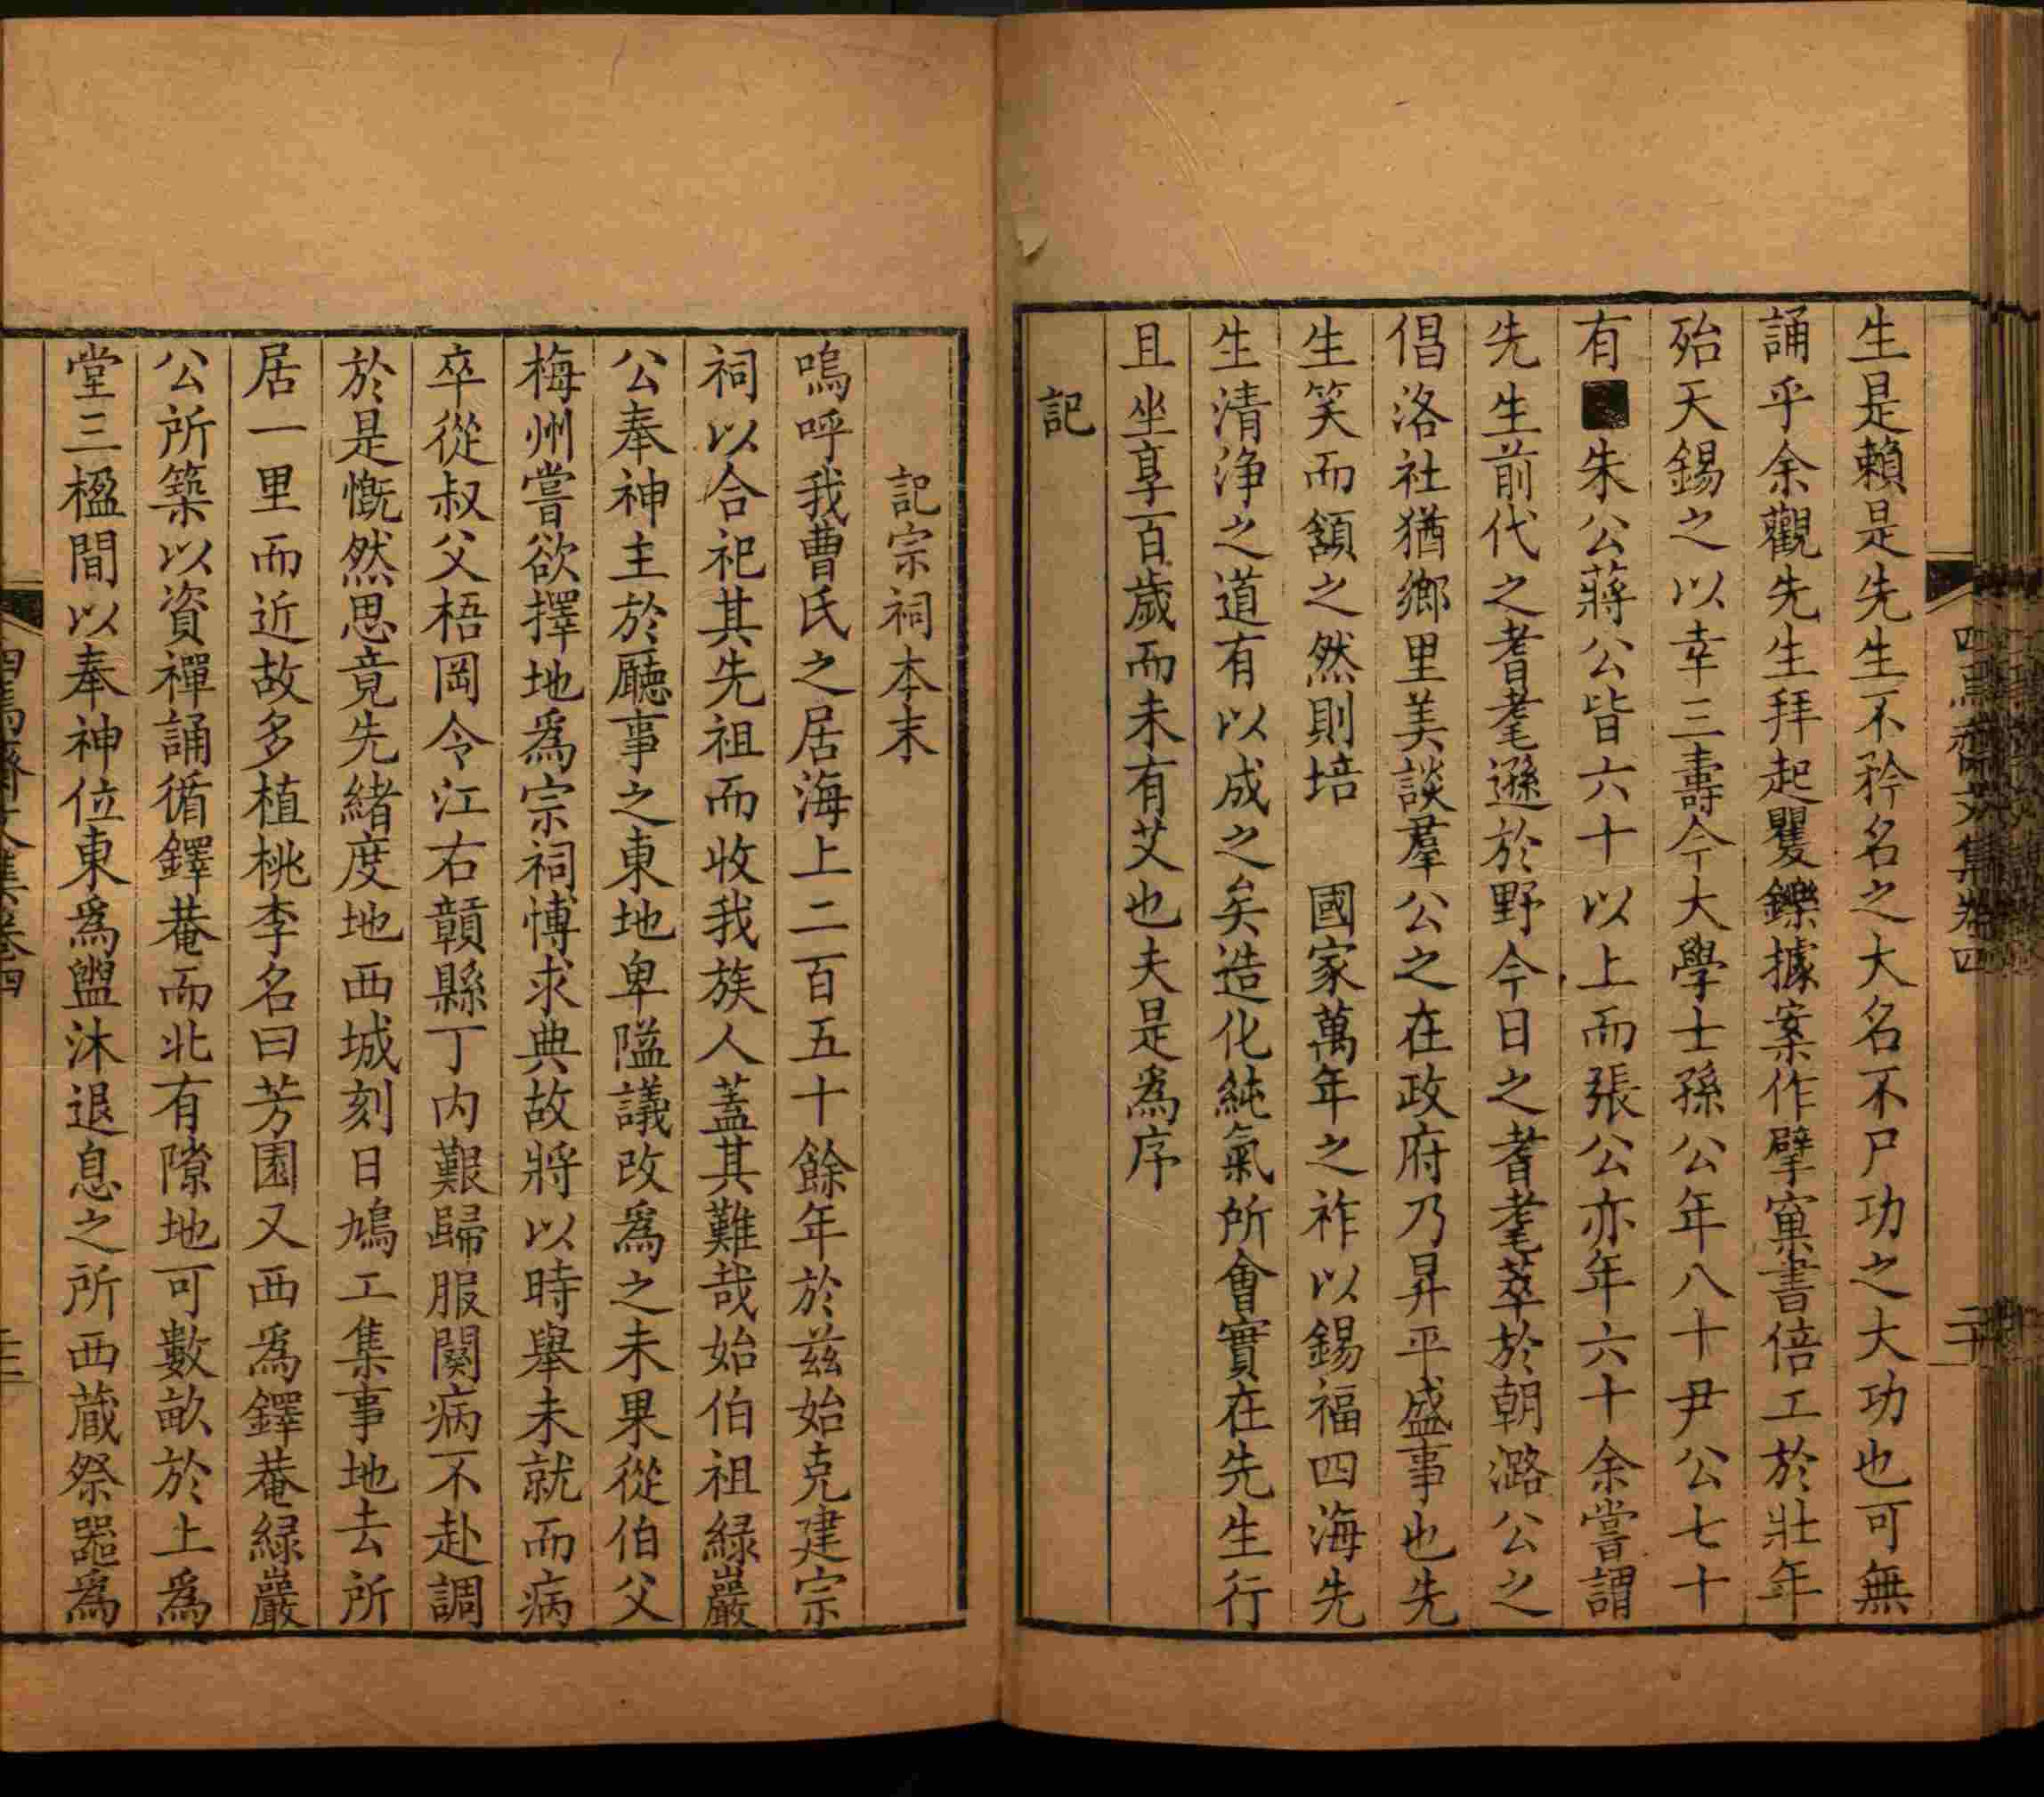 生是賴是先生不矜名之大名不尸功之大功也可無
誦乎余觀先生拜起矍鑠據案作擘窠書倍工於壯年
殆天錫之以幸三壽今大學士孫公年八十尹公七十
有朱公蔣公皆六十以上而張公亦年六十余嘗謂
先生前代之耆耄遜於野今日之耆耄萃於朝潞公之
倡洛社猶鄉里美談羣公之在政府乃昇平盛事也先
生笑而頷之然則培 國家萬年之祚以錫福四海先
生清淨之道有以成之矣造化純氣所會實在先生行
且坐享百歲而未有艾也夫是為序
記
四焉齋文集卷四
二十
記宗祠本末
嗚呼我曹氏之居海上二百五十餘年於兹始克建宗
祠以合祀其先祖而收我族人蓋其難哉始伯祖緑巖
公奉神主於廳事之東地卑隘議改爲之未果從伯父
梅州嘗欲擇地爲宗祠博求典故將以時舉未就而病
卒從叔父梧岡令江右贛縣丁内艱歸服闋病不赴調
於是慨然思竟先緒度地西城刻日鳩工集事地去所
居一里而近故多植桃李名曰芳園又西爲鐸菴緑巖
公所築以資禪誦循鐸菴而北有隙地可數畝於上爲
堂三楹間以奉神位東爲盥沐退息之所西蔵祭器爲
四焉齋文集卷四